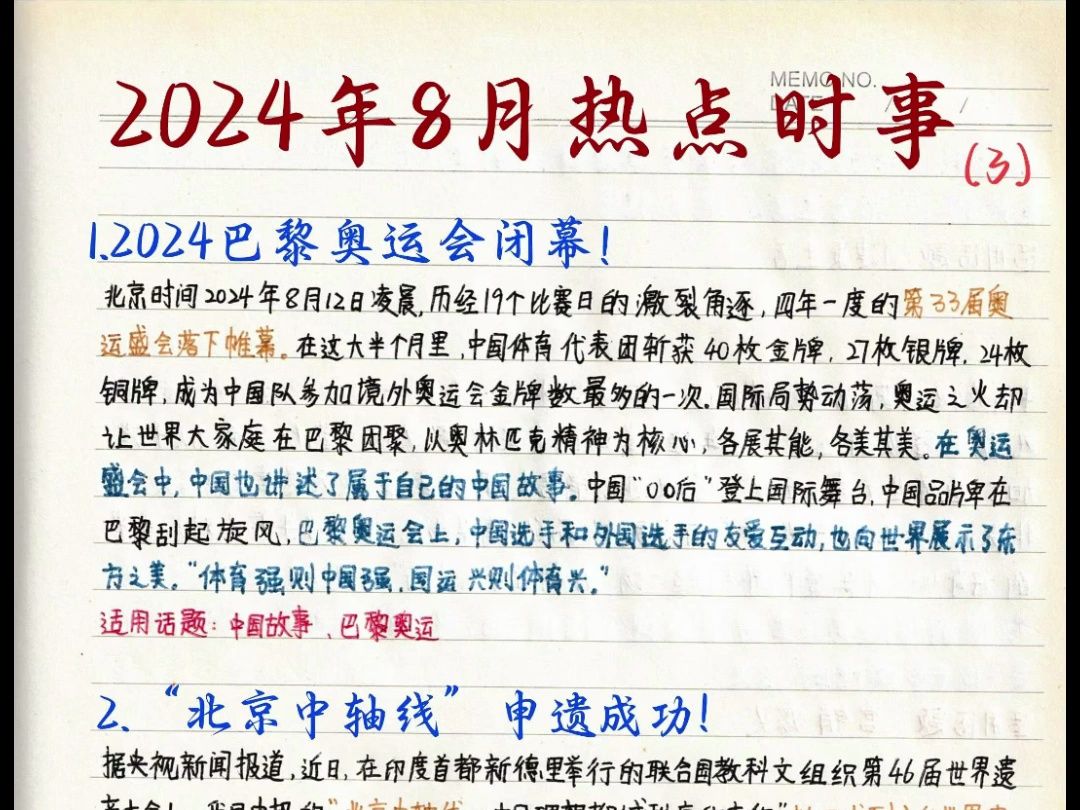 MEMO NO.
2024年8月热点时事
(3)
1.2024巴黎奥运会闭幕!
北京时间2024年8月12日凌晨,历经19个比赛日的激烈角逐,四年一度的第33届奥
运盛会落下帷幕。在这大半个月里,中国体育代表团斩获40枚金牌,27枚银牌,24枚
铜牌,成为中国队参加境外奥运会金牌数最多的一次。国际局势动荡,奥运之火却
让世界大家庭在巴黎团聚,以奥林匹克精神为核心,各展其能,各美其美。在奥运
盛会中,中国也讲述了属于自己的中国故事。中国“00后”登上国际舞台,中国品牌在
巴黎刮起旋风,巴黎奥运会上,中国选手和外国选手的友爱互动,也向世界展示了东
方之美。“体育强则中国强,国运兴则体育兴。”
适用话题:中国故事、巴黎奥运
2.“北京中轴线”申遗成功!
据央视新闻报道,近日,在印度首都新德里举行的联合国教科文组织第46届世界遗